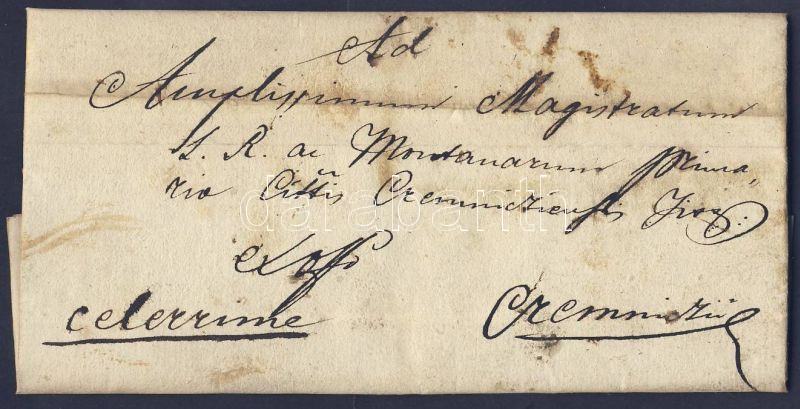 Ad
Amplissimum Magistratum
L. R. ac Montanarum prima,
rio Cittis Cremnitziensis
darabanth
ex offo
celerrime
Cremnitzii